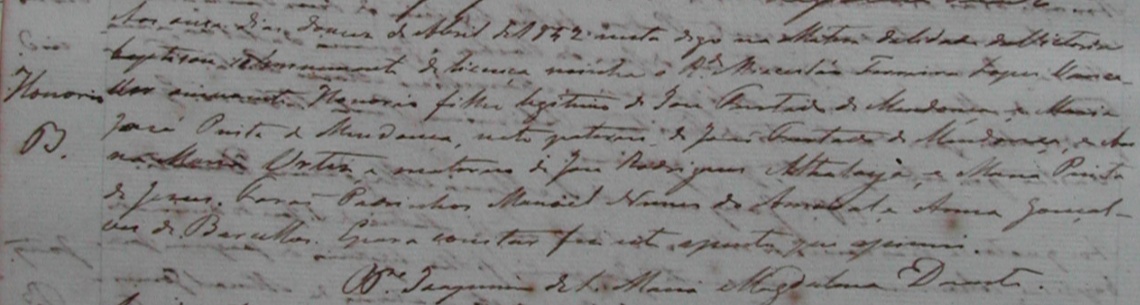 Aos onze dias do mez de Abril de 1842 nesta digo na Matriz da Cidade da Victoria
baptisou solemnemente de licença minha o Rdo. Firmino Lopes
Honorio innocente Honorio filho legitimo de José Furtado de Mendonça, e Maria
B. José Pinta de Mendonça, neto paterno de José Furtado de Mendonça, e An
na Maria Ortiz, e materno de José Rodrigues Athalaya, e Maria Pinta
de Jesus. Foraõ Padrinhos Manoel Nunes do Amaral, e Anna Gonçal-
ves de Barcellos. E para constar fiz este assento, que assignei.
Joaquim de S. Maria Magdalena Duarte.